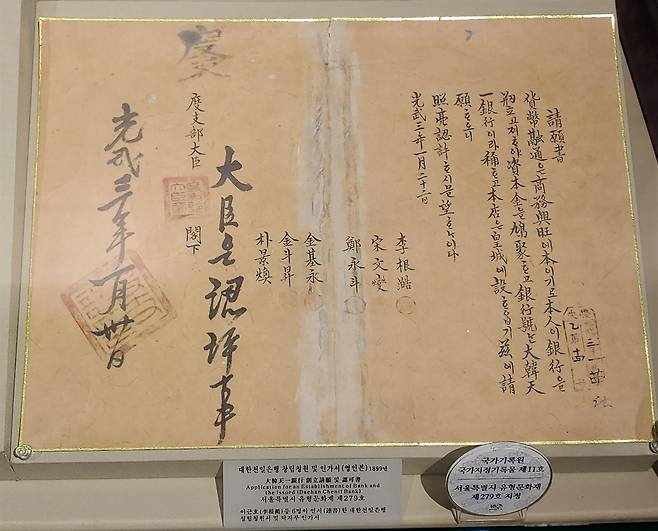 請願書
貨幣融通은商務興旺에本이기로本人이銀行을
刱立고저ᄒᆞ야資本金을鳩聚ᄒᆞ고銀行號는大韓天
一銀行이라稱ᄒᆞ고本店은皇城에設ᄒᆞ옵기玆에請
願ᄒᆞ오니
照亮認許ᄒᆞ시믈望ᄒᆞ나이다
光武三年一月二十二日
李根澔
宋文燮
鄭永斗
金基永
金斗昇
朴景煥
度支部大臣 閣下
大臣은認許事
光武三年一月卅日
대한천일은행 창립청원 및 인가서(영인본)1899년
大韓天一銀行 創立請願 및 認可書
Application for an Establishment of Bank and
the Issued (Daehan Chenil Bank)
서울특별시 유형문화재 제279호
이근호(李根澔)등 6명이 연서(連書)한 대한천일은행
설립청원서 및 탁지부 인가서
국가기록원
국가지정기록물 제11호
서울특별시 유형문화재
제279호 지정